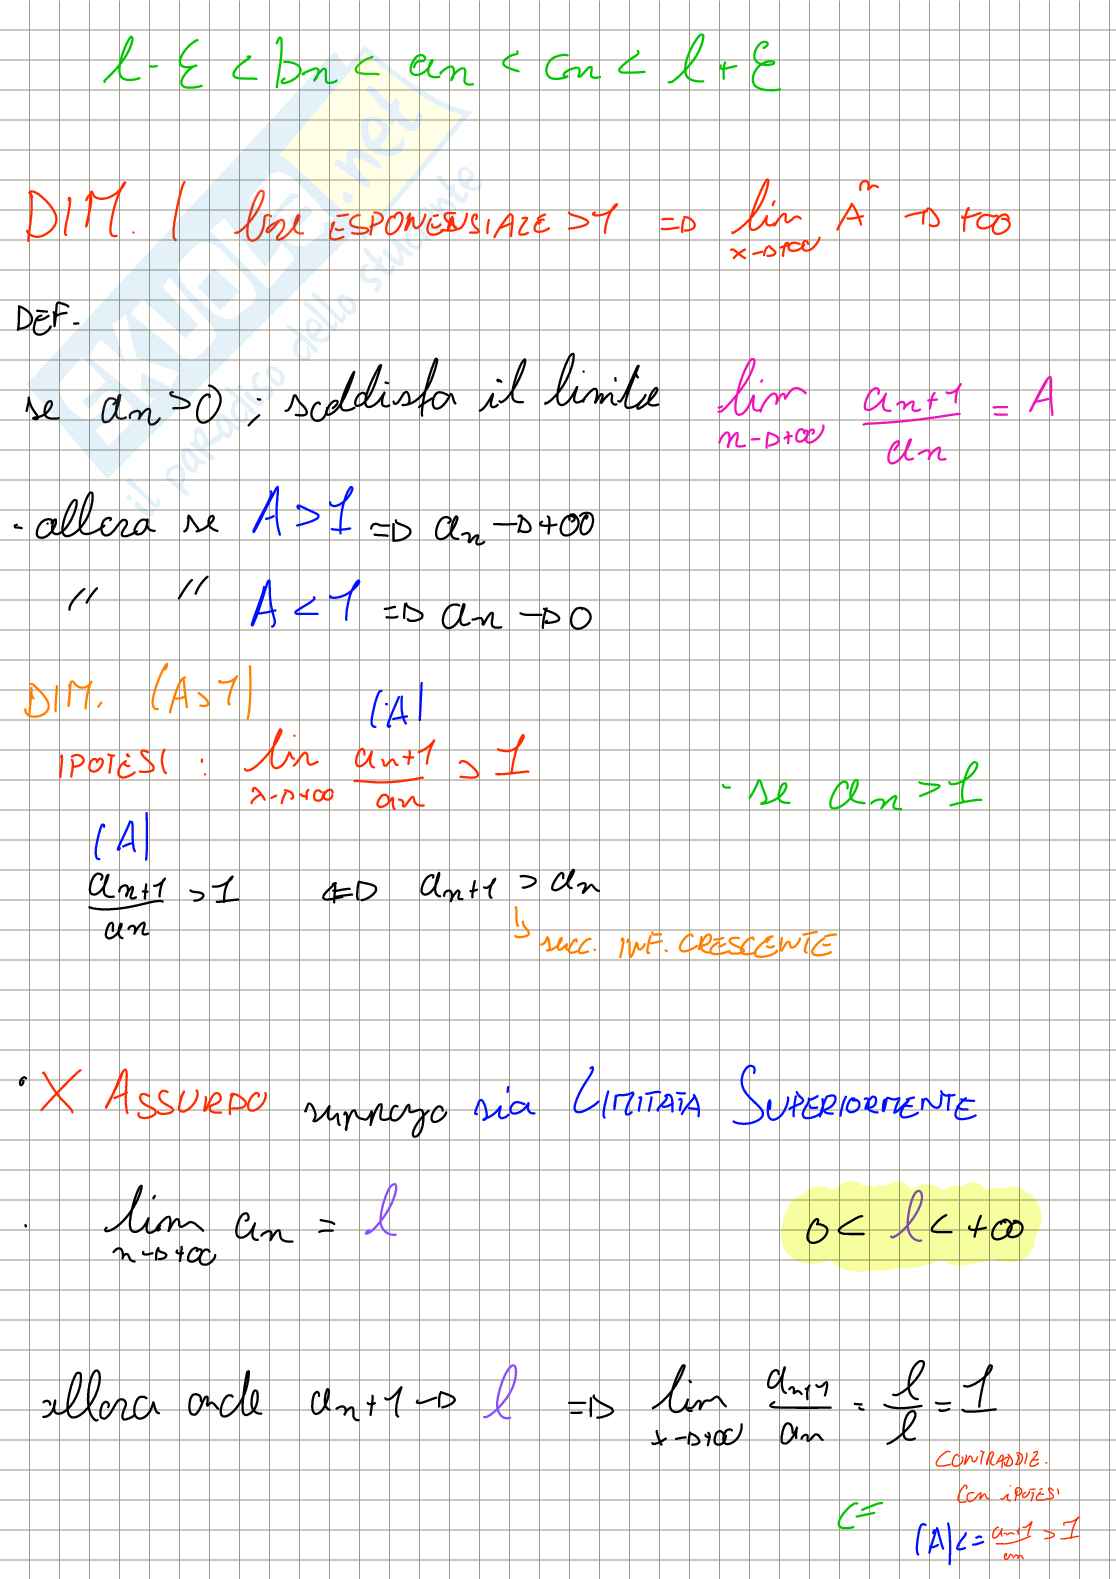 l - ε < bn < an < cn < l + ε
DIM. / base ESPONENSIALE > 1 => lim x→+∞ Aⁿ → +∞
DEF.
se an > 0 ; soddisfa il limite lim n→+∞ an+1/an = A
- allora se A > 1 => an → +∞
" " A < 1 => an → 0
DIM. (A > 1)
(A)
IPOTESI : lim x→+∞ an+1/an > 1
- se an > 1
(A)
an+1/an > 1 <=> an+1 > an
↳ succ. INF. CRESCENTE
• X ASSURDO suppongo sia LIMITATA SUPERIORMENTE
. lim n→+∞ an = l 0 < l < +∞
allora anche an+1 → l => lim x→+∞ an+1/an = l/l = 1
CONTRADDIE.
Con iPOTESI
<= (A) <= an+1/an > 1
SKUOLA.net
il paradiso dello studente